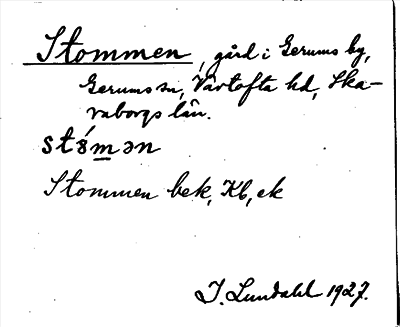 Stommen, gård i Gerums by,
Gerums sn, Vartofta hd, Ska-
raborgs län.
Stommen bek, Kb, ek
I. Lundahl 1927.